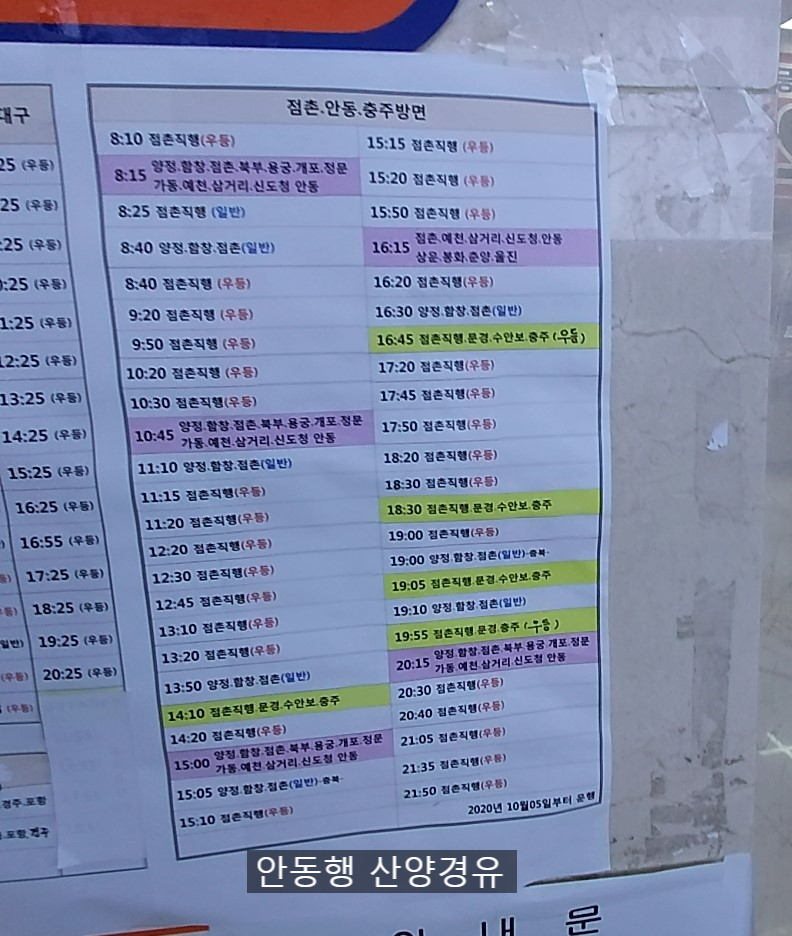 대구
25 (우등)
25 (우등)
:25 (우등)
0:25 (우등)
1:25 (우등)
12:25 (우등)
13:25 (우등)
14:25 (우등)
15:25 (우등)
16:25 (우등)
16:55 (우등)
17:25 (우등)
18:25 (우등)
19:25 (우등)
20:25 (우등)
경주.포항
점촌.안동.충주방면
8:10 점촌직행(우등)
8:15 양정.함창.점촌.북부.용궁.개포.정문
가동.예천.삼거리.신도청 안동
8:25 점촌직행 (일반)
8:40 양정.함창.점촌(일반)
8:40 점촌직행 (우등)
9:20 점촌직행 (우등)
9:50 점촌직행 (우등)
10:20 점촌직행 (우등)
10:30 점촌직행(우등)
10:45 양정.함창.점촌.북부.용궁.개포.정문
가동.예천.삼거리.신도청 안동
11:10 양정.함창.점촌(일반)
11:15 점촌직행(우등)
11:20 점촌직행(우등)
12:20 점촌직행(우등)
12:30 점촌직행(우등)
12:45 점촌직행(우등)
13:10 점촌직행(우등)
13:20 점촌직행(우등)
13:50 양정.함창.점촌(일반)
14:10 점촌직행.문경.수안보.충주
14:20 점촌직행(우등)
15:00 양정.함창.점촌.북부.용궁.개포.정문
가동.예천.삼거리.신도청 안동
15:05 양정.함창.점촌(일반)-충북-
15:10 점촌직행(우등)
15:15 점촌직행 (우등)
15:20 점촌직행 (우등)
15:50 점촌직행 (우등)
16:15 점촌.예천.삼거리.신도청.안동
상운.봉화.춘양.울진
16:20 점촌직행(우등)
16:30 양정.함창.점촌(일반)
16:45 점촌직행.문경.수안보.충주 (우등)
17:20 점촌직행(우등)
17:45 점촌직행(우등)
17:50 점촌직행(우등)
18:20 점촌직행(우등)
18:30 점촌직행(우등)
18:30 점촌직행.문경.수안보.충주
19:00 점촌직행(우등)
19:00 양정.함창.점촌(일반)-충북-
19:05 점촌직행.문경.수안보.충주
19:10 양정.함창.점촌(일반)
19:55 점촌직행.문경.충주 (우등)
20:15 양정.함창.점촌.북부.용궁.개포.정문
가동.예천.삼거리.신도청 안동
20:30 점촌직행(우등)
20:40 점촌직행(우등)
21:05 점촌직행(우등)
21:35 점촌직행(우등)
21:50 점촌직행(우등)
2020년 10월05일부터 운행
안동행 산양경유
안 내 문